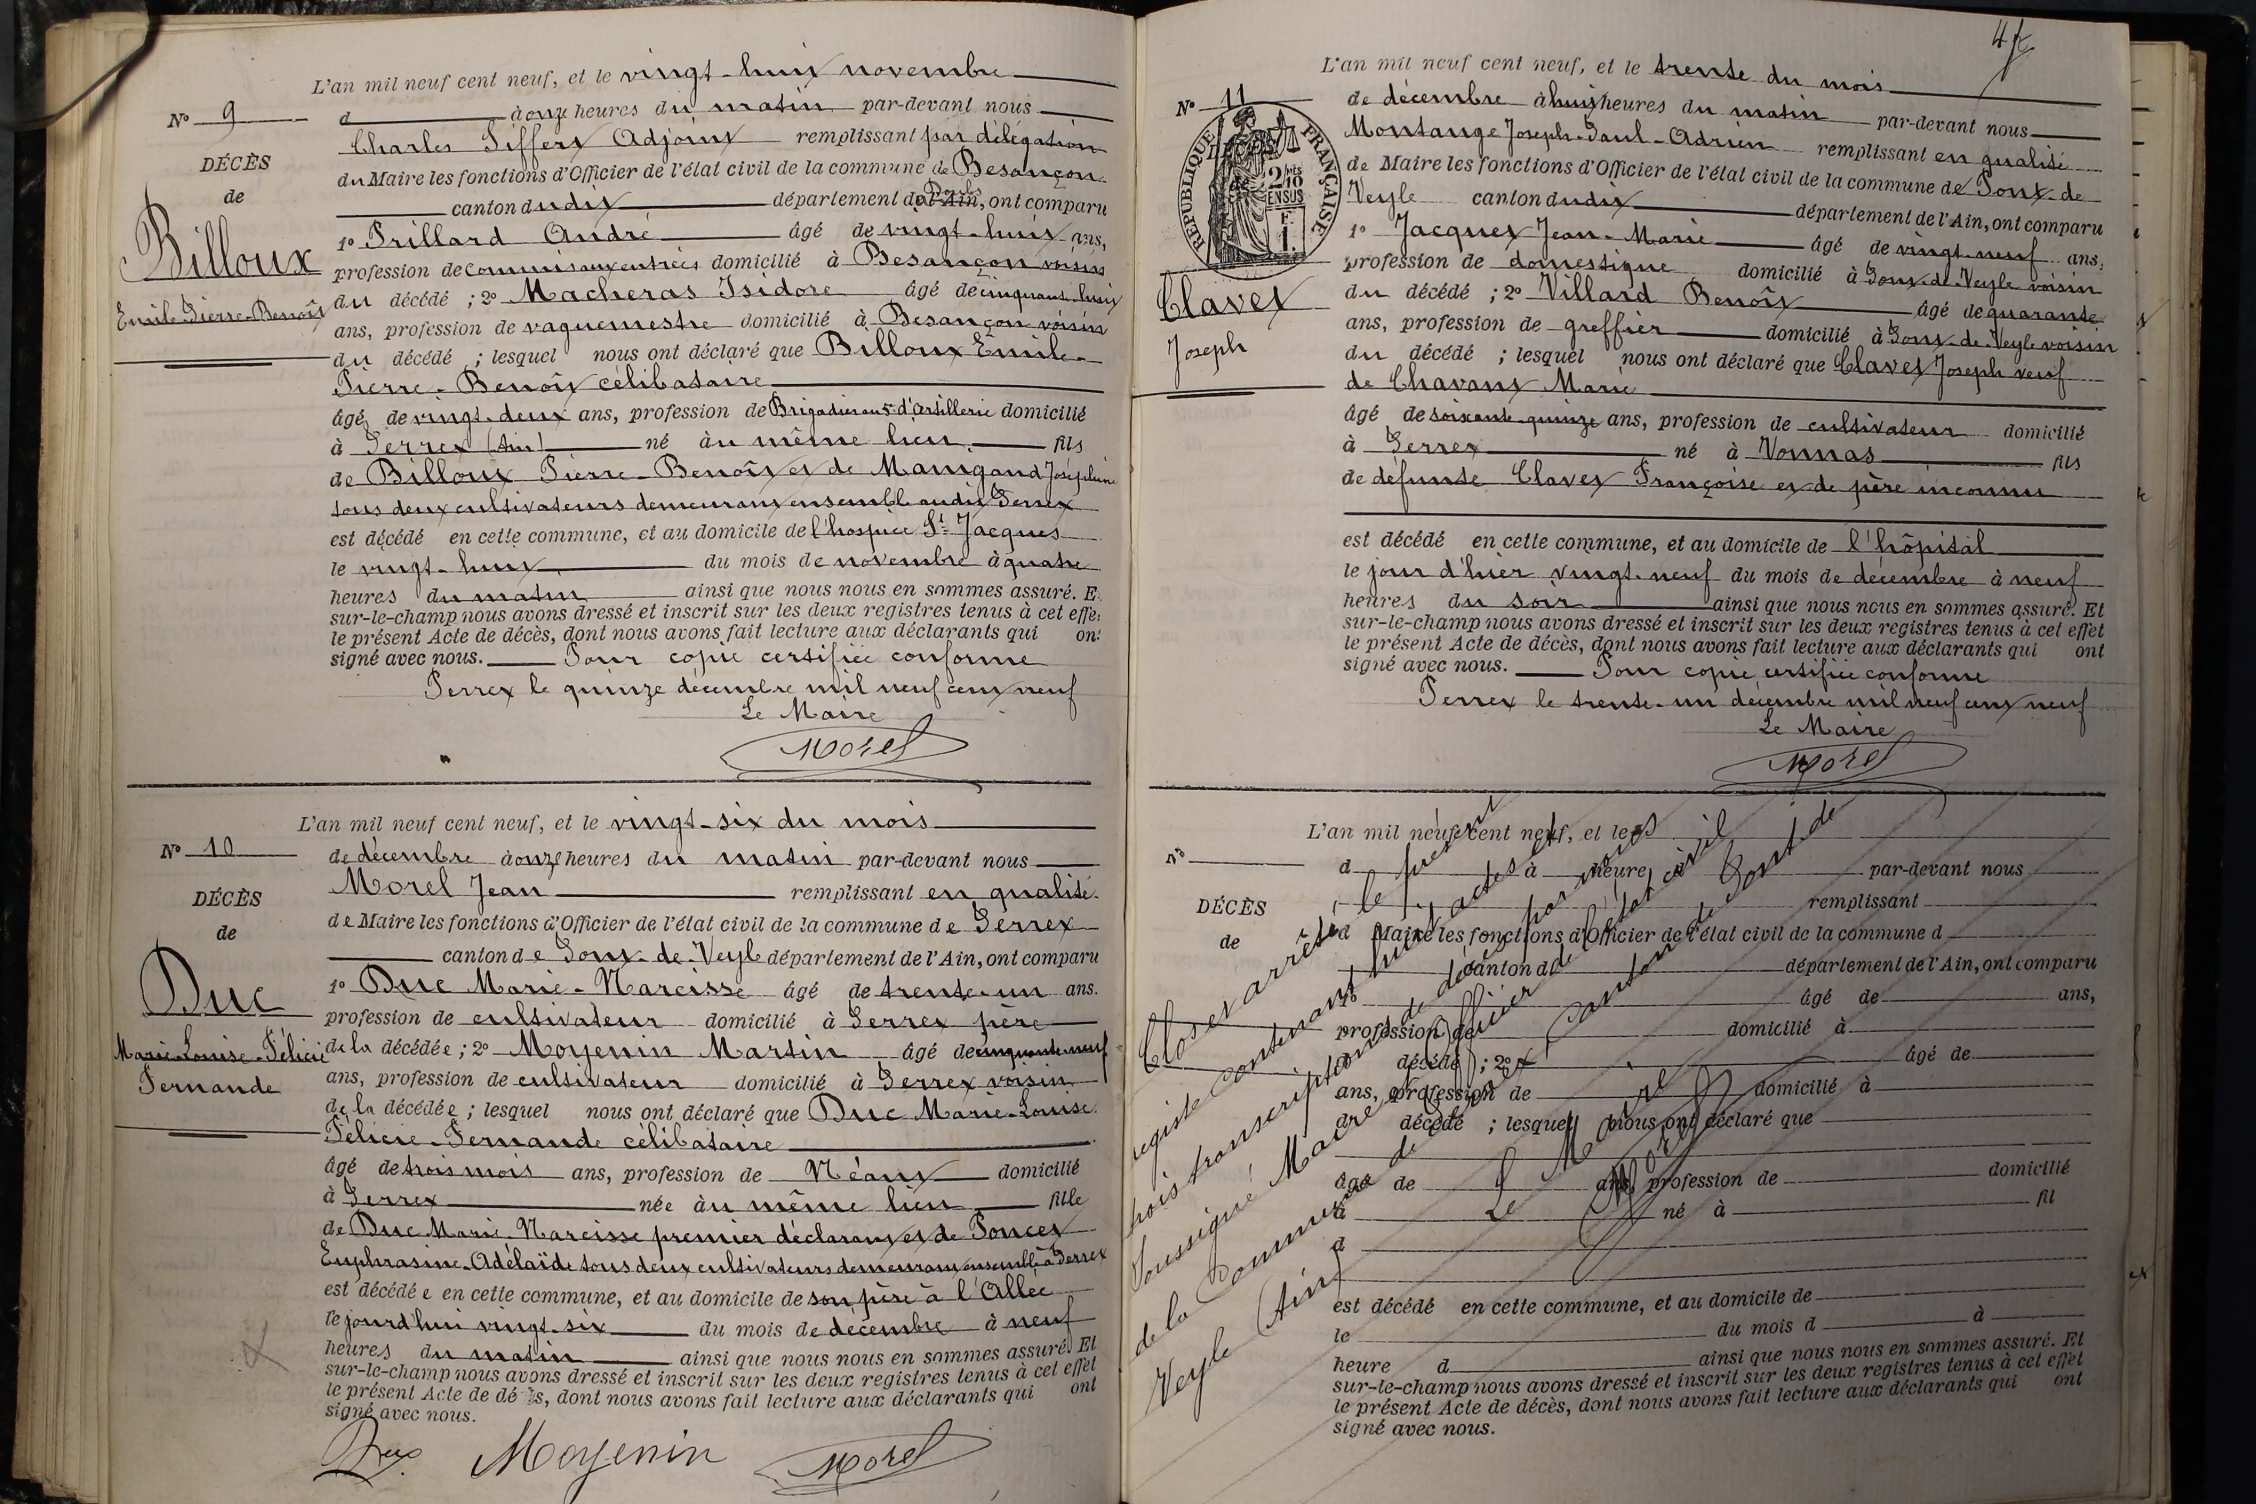 L'an mil neuf cent neuf, et le vingt-huit novembre
No 9
d à onze heures du matin par-devant nous
Charles Siffert Adjoint remplissant par délégation
DÉCÈS
du Maire les fonctions d'Officier de l'état civil de la commune de Besançon
de
canton dudit département de l'Ain, ont comparu
Billoux
1o Prillard André âgé de vingt-huit ans,
profession de commis aux entrées domicilié à Besançon voisin
Emile Pierre-Benoît
du décédé ; 2o Macheras Isidore âgé de cinquante huit
ans, profession de vaguemestre domicilié à Besançon voisin
du décédé ; lesquel nous ont déclaré que Billoux Emile-
Pierre-Benoît célibataire
âgé de vingt-deux ans, profession de Brigadier au 5e d'Artillerie domicilié
à Perrex (Ain) né au même lieu fils
de Billoux Pierre-Benoît et de Manigand Joséphine
tous deux cultivateurs demeurant ensemble audit Perrex
est décédé en cette commune, et au domicile de l'hospice St Jacques
le vingt-huit du mois de novembre à quatre
heures du matin ainsi que nous nous en sommes assuré. E
sur-le-champ nous avons dressé et inscrit sur les deux registres tenus à cet effe
le présent Acte de décès, dont nous avons fait lecture aux déclarants qui on
signé avec nous. Pour copie certifiée conforme
Perrex le quinze décembre mil neuf cent neuf
Le Maire
Morel
L'an mil neuf cent neuf, et le vingt-six du mois
No 10
de décembre à onze heures du matin par-devant nous
Morel Jean remplissant en qualité
DÉCÈS
de Maire les fonctions d'Officier de l'état civil de la commune de Perrex
de
canton de Pont-de-Veyle département de l'Ain, ont comparu
Duc
1o Duc Marie-Narcisse âgé de trente-un ans.
profession de cultivateur domicilié à Perrex père
Marie-Louise-Félicie
de la décédée ; 2o Moyenin Martin âgé de cinquante neuf
Fernande
ans, profession de cultivateur domicilié à Perrex voisin
de la décédée ; lesquel nous ont déclaré que Duc Marie-Louise
Félicie-Fernande célibataire
âgé de trois mois ans, profession de Néant domicilié
à Perrex née au même lieu fille
de Duc Marie-Narcisse premier déclarant et de Poncet
Euphrasine-Adélaïde tous deux cultivateurs demeurant ensemble à Perrex
est décédée en cette commune, et au domicile de son père à l'Allée
le jourd'hui vingt-six du mois de décembre à neuf
heures du matin ainsi que nous nous en sommes assuré. Et
sur-le-champ nous avons dressé et inscrit sur les deux registres tenus à cet effet
le présent Acte de décès, dont nous avons fait lecture aux déclarants qui ont
signé avec nous.
Duc Moyenin Morel
L'an mil neuf cent neuf, et le trente du mois
No 11
de décembre à huit heures du matin par-devant nous
Montange Joseph-Paul-Adrien remplissant en qualité
RÉPUBLIQUE FRANÇAISE
2/10 EN SUS
F. 1.
de Maire les fonctions d'Officier de l'état civil de la commune de Pont-de-
Veyle canton dudit département de l'Ain, ont comparu
1o Jacquet Jean-Marie âgé de vingt-neuf ans,
profession de domestique domicilié à Pont-de-Veyle voisin
Clavet
Joseph
du décédé ; 2o Villard Benoît âgé de quarante
ans, profession de greffier domicilié à Pont-de-Veyle voisin
du décédé ; lesquel nous ont déclaré que Clavet Joseph veuf
de Chavant Marie
âgé de soixante-quinze ans, profession de cultivateur domicilié
à Perrex né à Vonnas fils
de défunte Clavet Françoise et de père inconnu
est décédé en cette commune, et au domicile de l'hôpital
le jour d'hier vingt-neuf du mois de décembre à neuf
heures du soir ainsi que nous nous en sommes assuré. Et
sur-le-champ nous avons dressé et inscrit sur les deux registres tenus à cet effet
le présent Acte de décès, dont nous avons fait lecture aux déclarants qui ont
signé avec nous. Pour copie certifiée conforme
Perrex le trente-un décembre mil neuf cent neuf
Le Maire
Morel
L'an mil neuf cent neuf, et le
No
d à heure par-devant nous
remplissant
DÉCÈS
d Maire les fonctions d'Officier de l'état civil de la commune d
de
canton d département de l'Ain, ont comparu
1o âgé de ans,
profession de domicilié à
d décédé ; 2o âgé de
ans, profession de domicilié à
d décédé ; lesquel nous ont déclaré que
âgé de ans, profession de domicilié
à né à fil
d
est décédé en cette commune, et au domicile de
le du mois d à
heure d ainsi que nous nous en sommes assuré. Et
sur-le-champ nous avons dressé et inscrit sur les deux registres tenus à cet effet
le présent Acte de décès, dont nous avons fait lecture aux déclarants qui ont
signé avec nous.
Clos et arrêté le présent
registre contenant huit actes et
trois transcriptions de décès par nous
soussigné Maire et Officier de l'état civil
de la Commune de Perrex, canton de Pont-de-
Veyle (Ain)
Le Maire
Morel